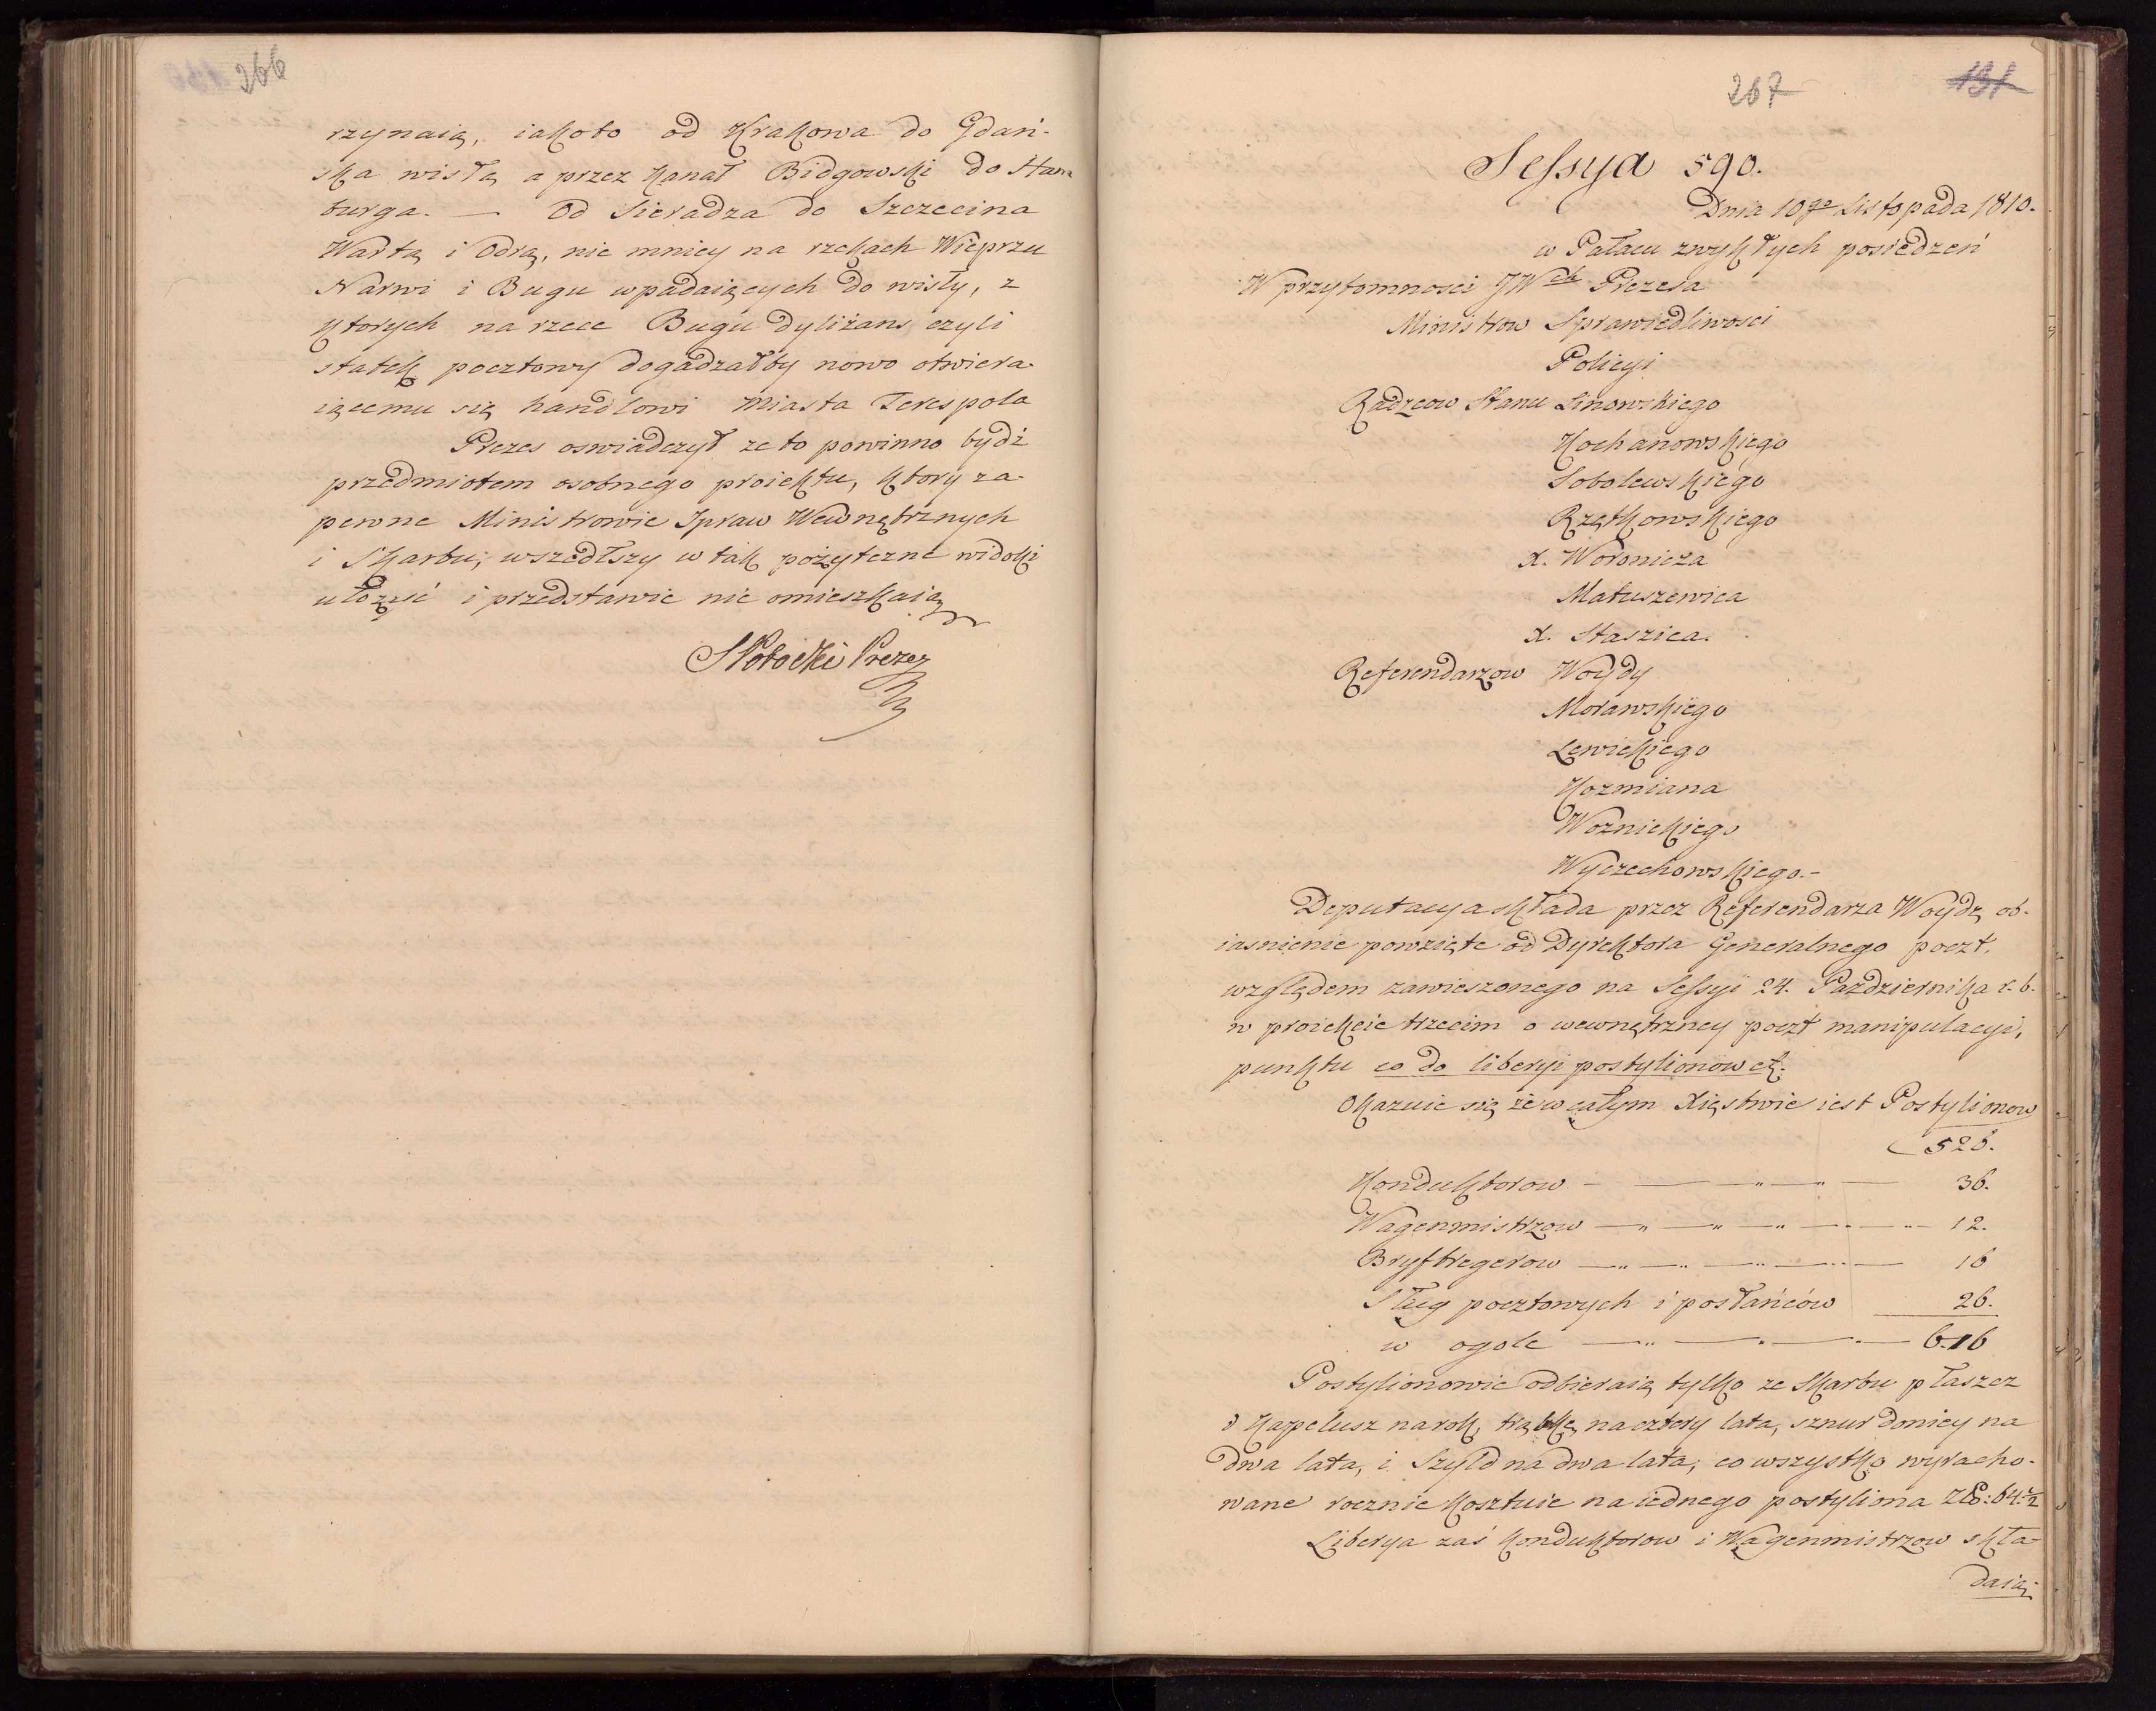 266
rzynaią, iakoto od Krakowa do Gdań-
ska wisłą a przez Kanał Bidgowski do Ham-
burga. — Od Sieradza do Szczecina
Wartą i Odrą, nie mniey na rzekach Wieprzu
Narwi i Bugu wpadaiących do wisły, z
ktorych na rzece Bugu dyliżans czyli
statek pocztowy dogadzałby nowo otwiera-
iącemu się handlowi Miasta Terespola
Prezes oswiadczył ze to powinno bydź
przedmiotem osobnego proiektu, ktory za-
pewne Ministrowie Spraw Wewnętrznych
i Skarbu, wszedłszy w tak pożyteczne widoki
ułożyć i przedstawic nie omieszkaią
SPotocki Prezes
267
131
Sessya 590.
Dnia 10go Listopada 1810.
w Pałacu zwykłych posiedzeń
W przytomnosci JWch Prezesa
Ministrow Sprawiedliwosci
Policyi
Radzcow Stanu Linowskiego
Kochanowskiego
Sobolewskiego
Rzętkowskiego
X. Woronicza
Matuszewica
X. Staszica.
Referendarzow Woydy
Morawskiego
Lewickiego
Kozmiana
Woznickiego
Wyczechowskiego.-
Deputacya składa przez Referendarza Woydę ob-
iasnienie powzięte od Dyrektora Generalnego poczt,
względem zawieszonego na Sessyi 24. Października r. b.
w proiekcie trzecim o wewnętrzney poczt manipulacyi,
punktu co do liberyi postylionow etc.
Okazuie się że w całym Xięstwie iest Postylionow
526.
Konduktorow - — — „ — „ — 36.
Wagenmistrzow — „ — „ — „ — „ — 12.
Bryftregerow — „ — „ — „ — „ — 16
Sług pocztowych i posłańców 26.
w ogole — „ — „ — „ — 616
Postylionowie odbieraią tylko ze Skarbu płaszcz
i Kapelusz na rok, trąbkę na cztery lata, sznur do niey na
dwa lata, i Szyld na dwa lata, co wszystko wyracho-
wane rocznie kosztuie na iednego postyliona Zł: 64.½
Liberya zaś konduktorow i Wagenmistrzow skła-
daią